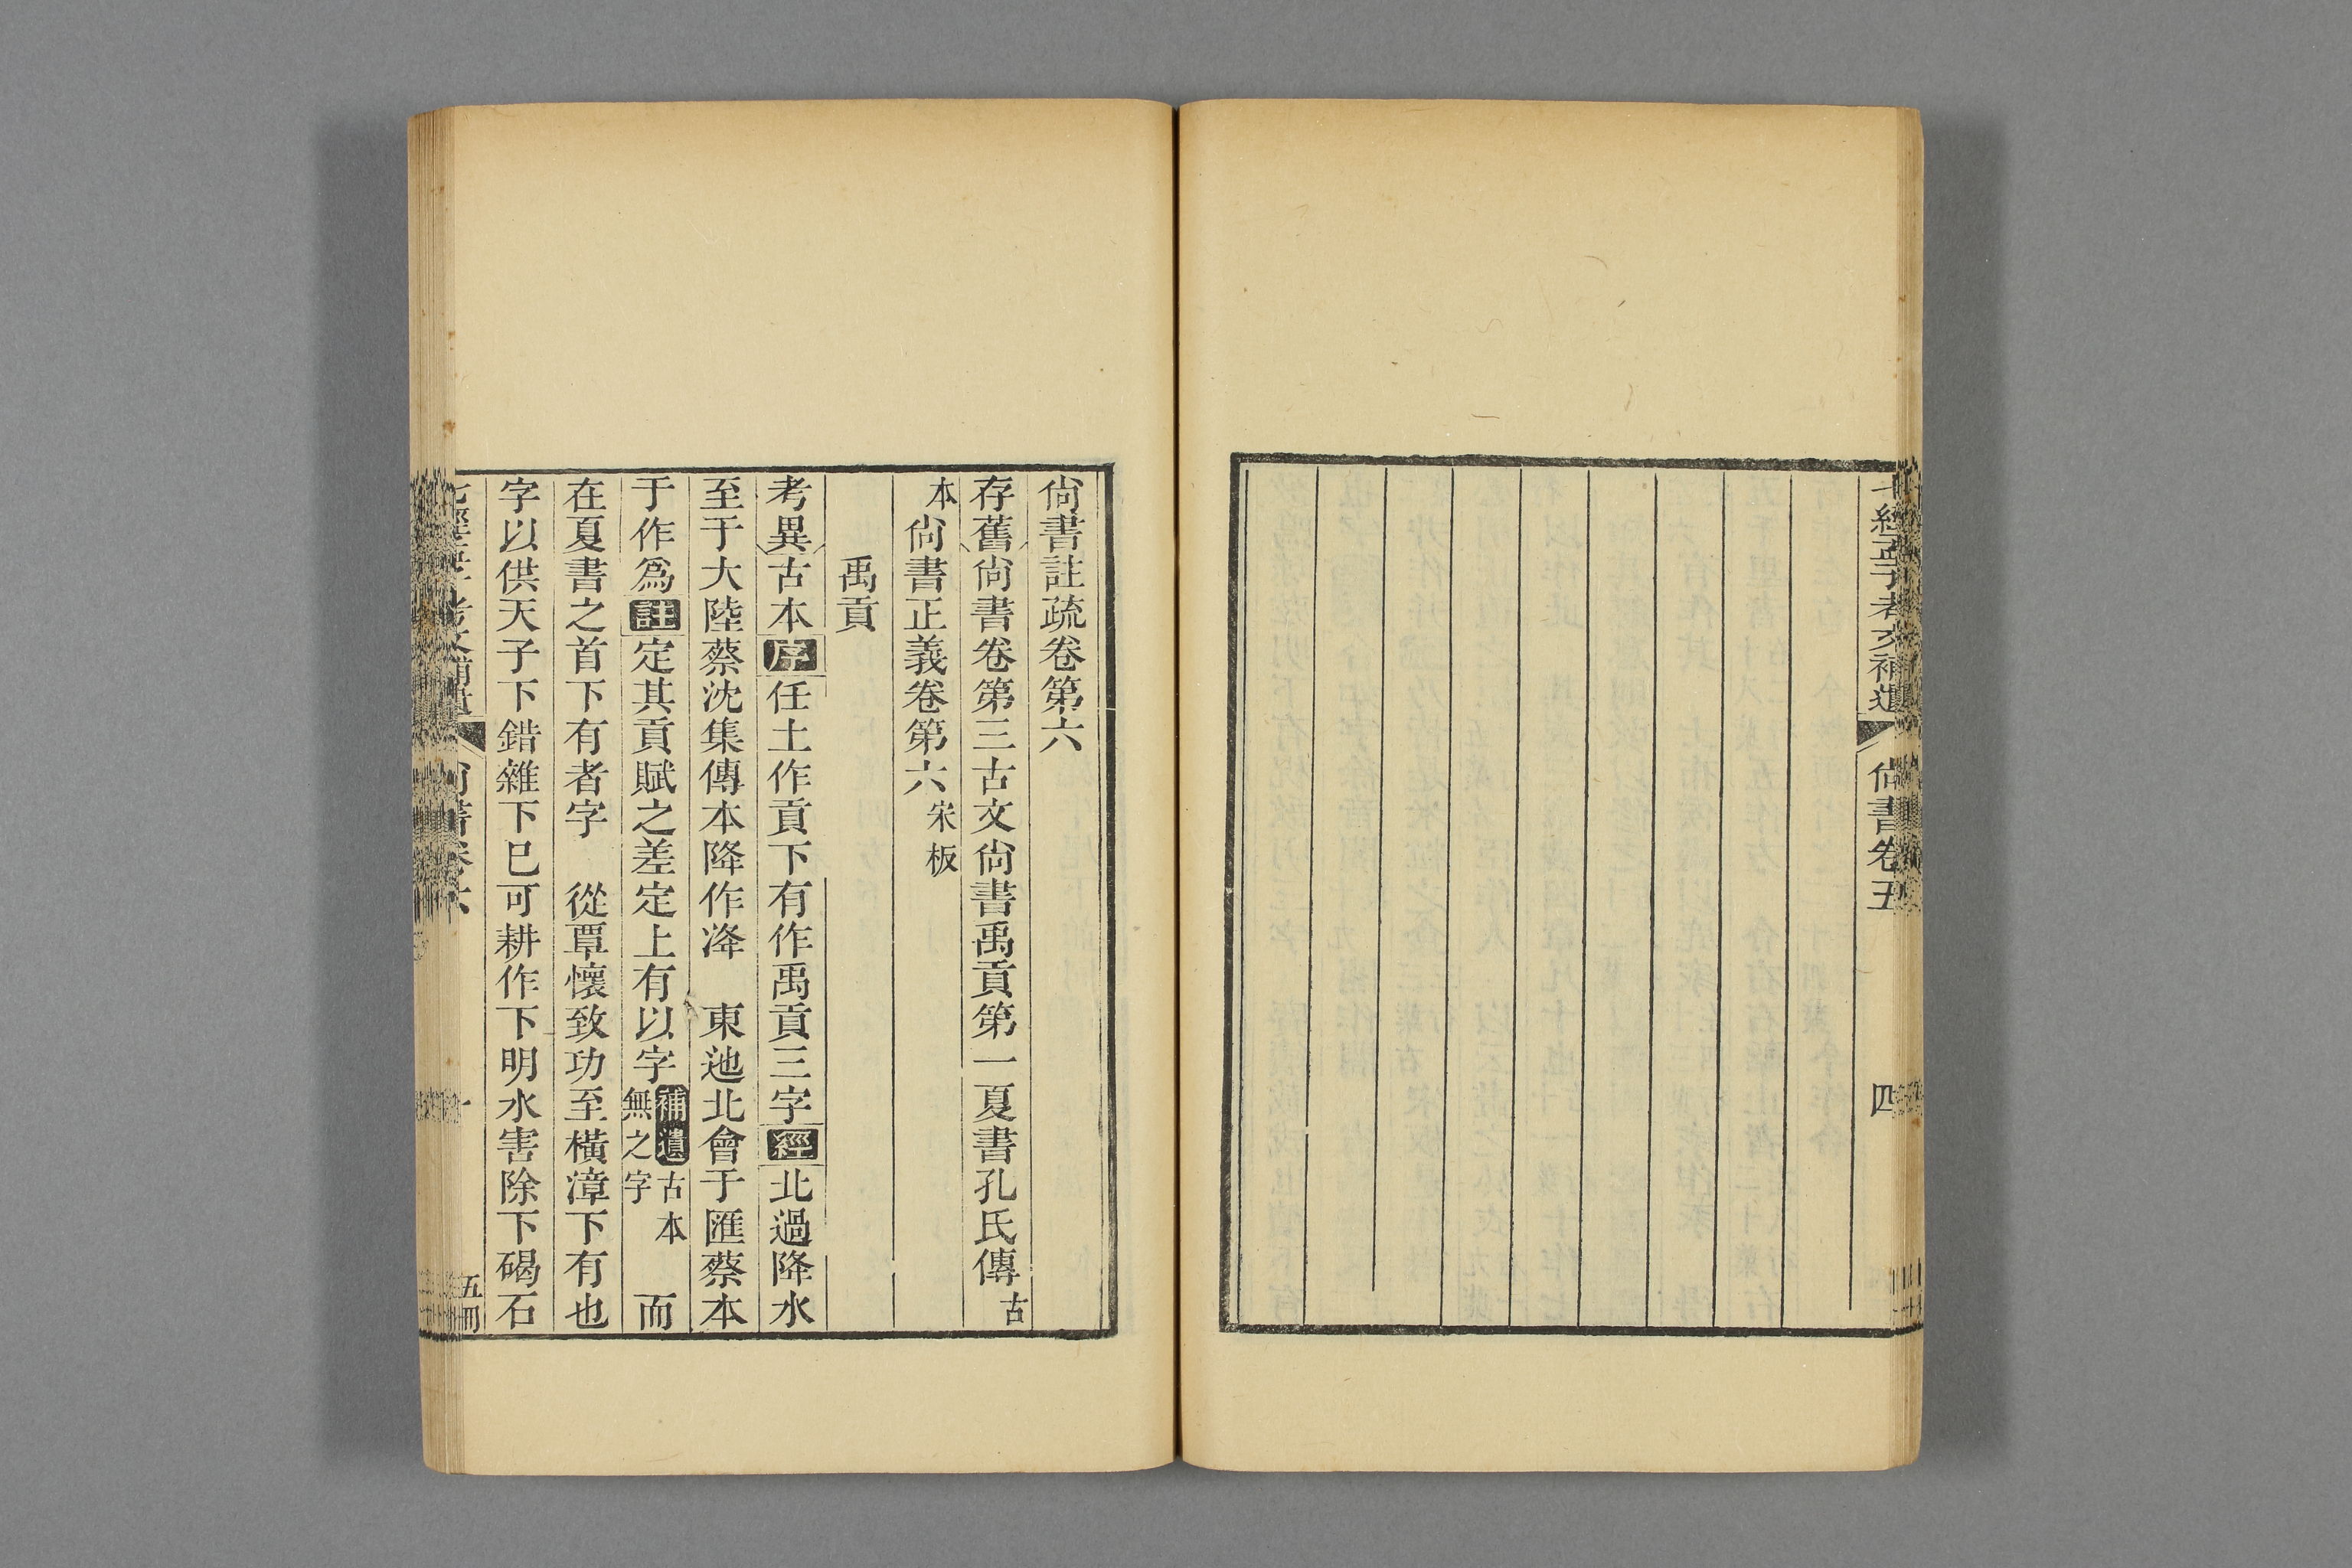 七經孟子考文補遺 尙書卷五 四
尙書註疏卷第六
存舊尙書卷第三古文尙書禹貢第一夏書孔氏傳古
本尙書正義卷第六宋板
禹貢
考異古本序任土作貢下有作禹貢三字經北過降水
至于大陸蔡沈集傳本降作洚 東迆北會于匯蔡本
于作爲註定其貢賦之差定上有以字補遺古本無之字 而
在夏書之首下有者字 從覃懷致功至橫漳下有也
字以供天子下錯雜下已可耕作下明水害除下碣石
七經孟子考文補遺 尙書卷六 一 五冊